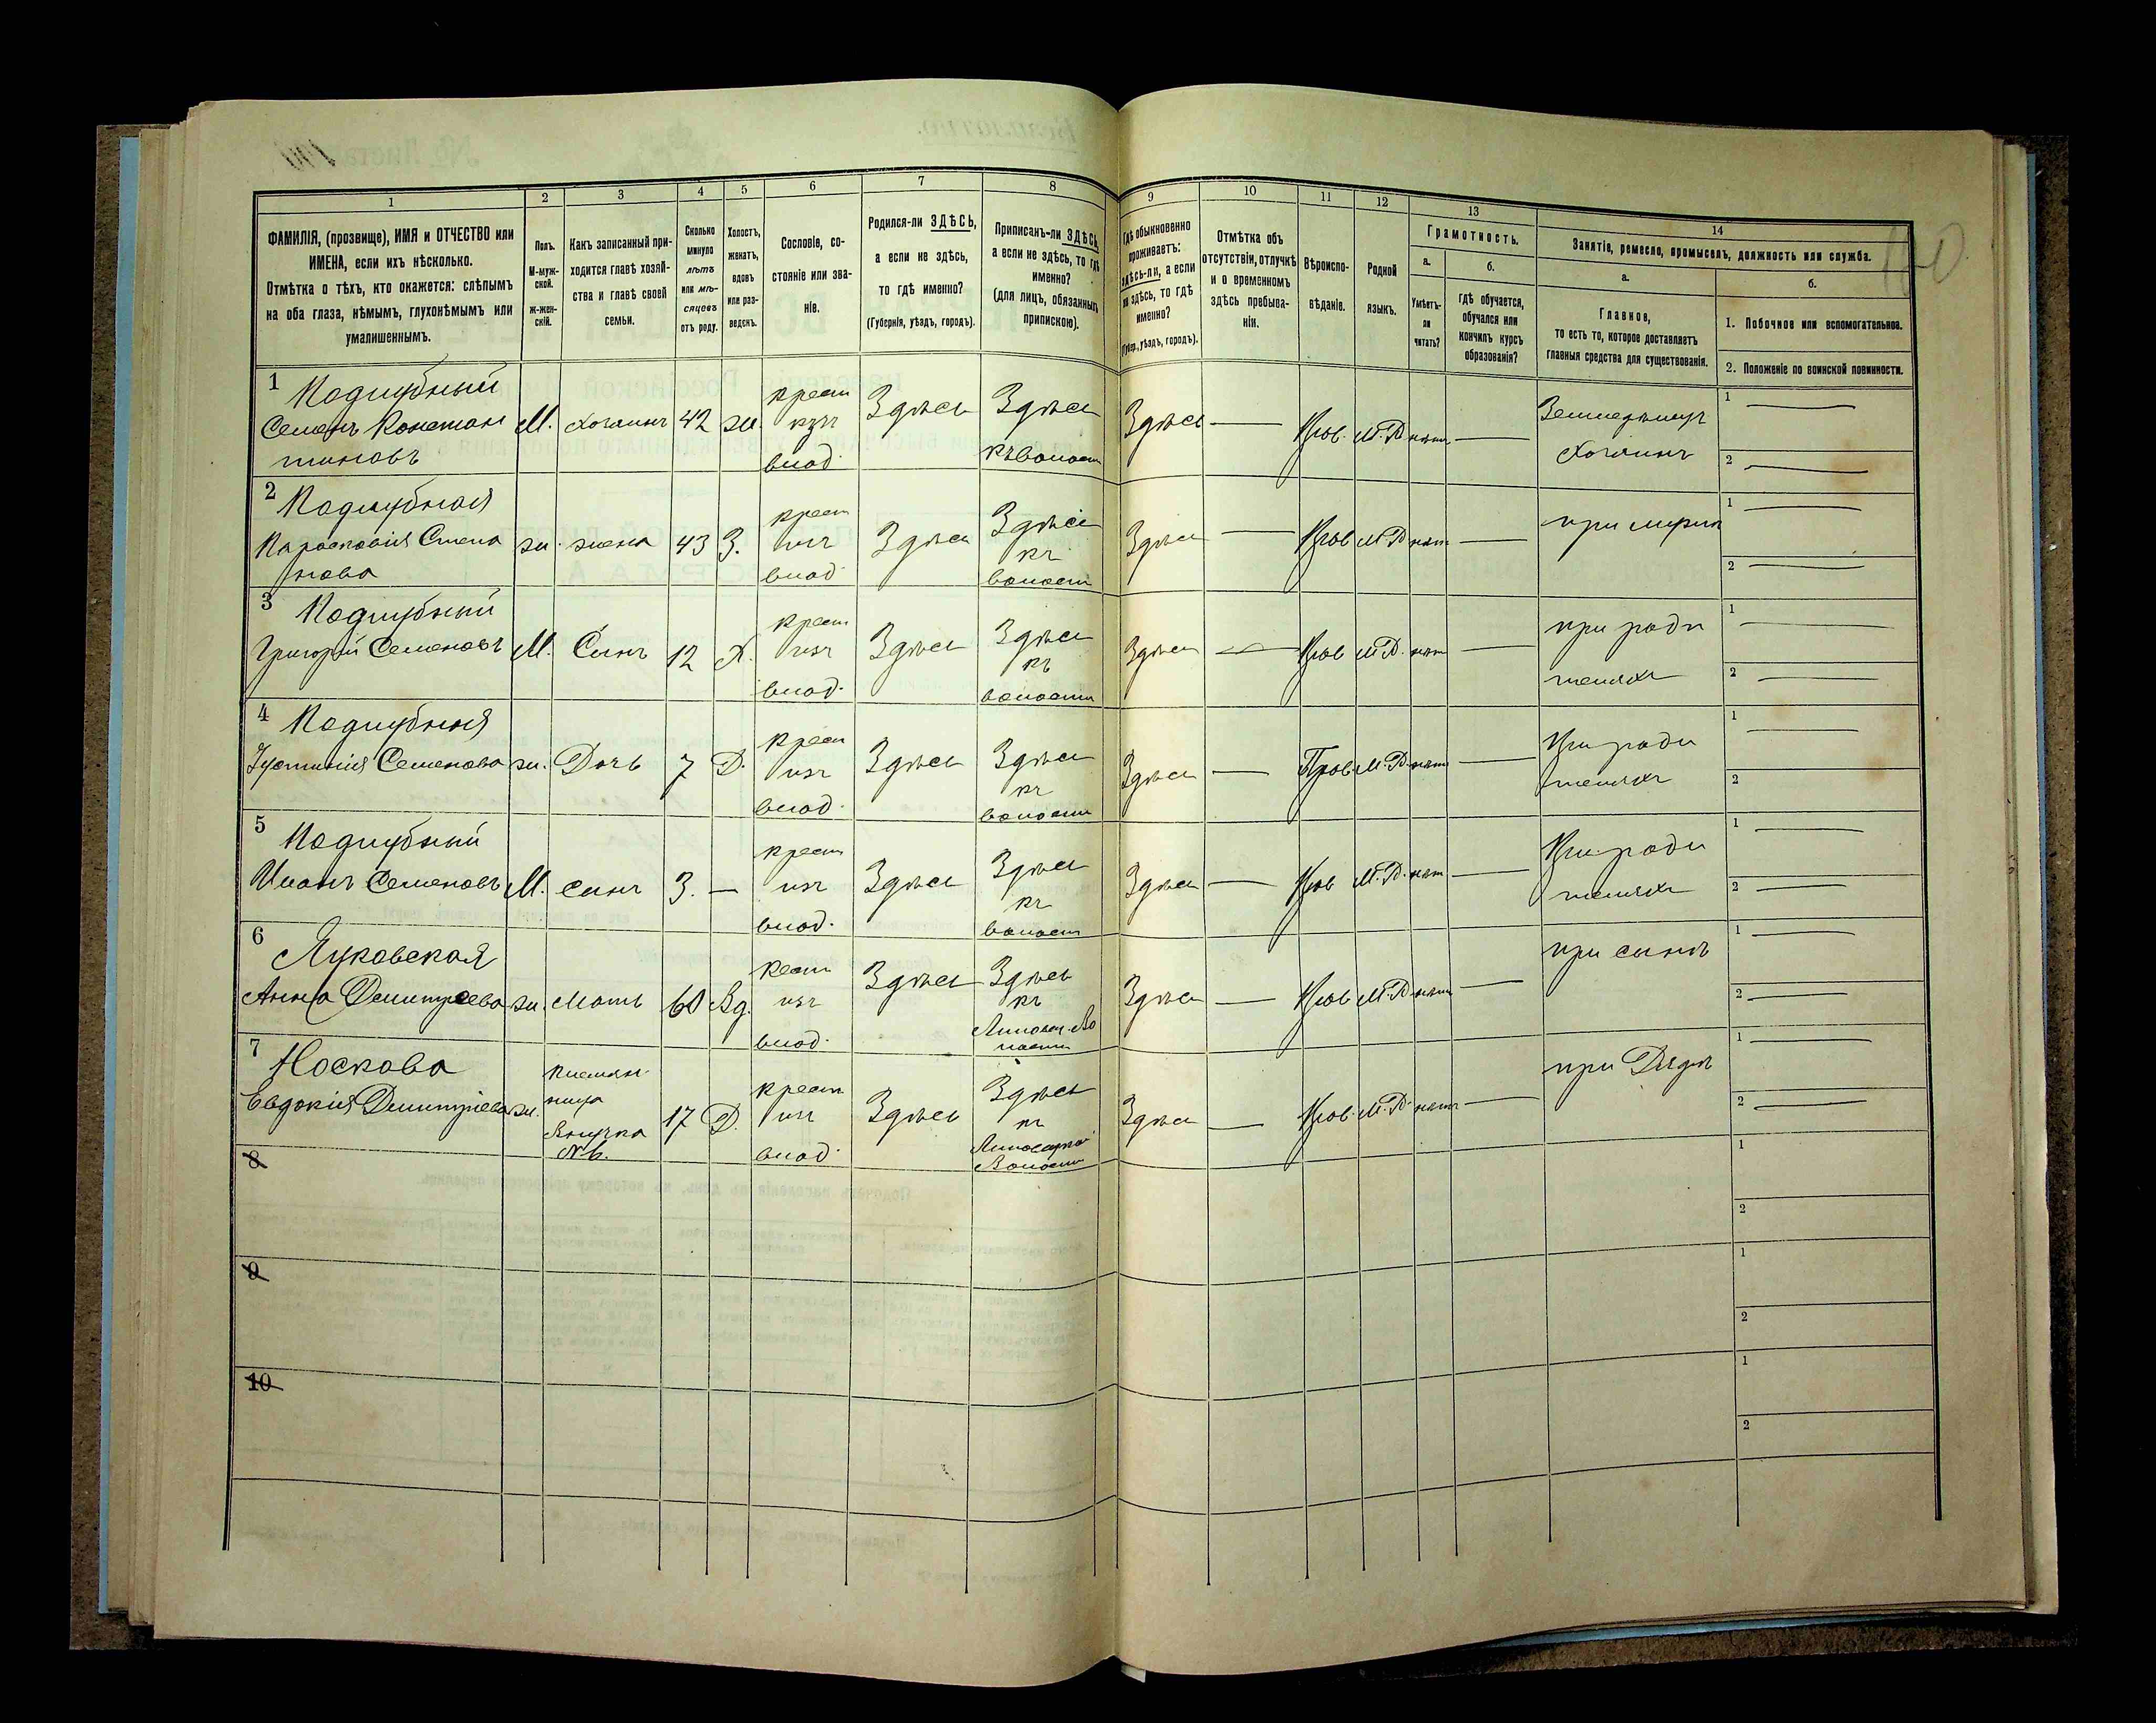 1 2 3 4 5 6 7 8 9 10 11 12 13 14
ФАМИЛІЯ, (прозвище), ИМЯ и ОТЧЕСТВО или
ИМЕНА, если ихъ нѣсколько.
Отмѣтка о тѣхъ, кто окажется: слѣпымъ
на оба глаза, нѣмымъ, глухонѣмымъ или
умалишеннымъ.
Полъ.
М-муж-
ской.
Ж-жен-
скій.
Какъ записанный при-
ходится главѣ хозяй-
ства и главѣ своей
семьи.
Сколько
минуло
лѣтъ
или мѣ-
сяцевъ
отъ роду.
Холостъ,
женатъ,
вдовъ
или раз-
веденъ.
Сословіе, со-
стояніе или зва-
ніе.
Родился-ли ЗДѢСЬ,
а если не здѣсь,
то гдѣ именно?
(Губернія, уѣздъ, городъ).
Приписанъ-ли ЗДѢСЬ,
а если не здѣсь, то гдѣ
именно?
(для лицъ, обязанныхъ
припискою).
Гдѣ обыкновенно
проживаетъ:
здѣсь-ли, а если
не здѣсь, то гдѣ
именно?
(Губер., уѣздъ, городъ).
Отмѣтка объ
отсутствіи, отлучкѣ
и о временномъ
здѣсь пребыва-
ніи.
Вѣроиспо-
вѣданіе.
Родной
языкъ.
Грамотность.
а.
Умѣетъ-
ли
читать?
б.
гдѣ обучается,
обучался или
кончилъ курсъ
образованія?
Занятіе, ремесло, промыселъ, должность или служба.
а.
Главное,
то есть то, которое доставляетъ
главныя средства для существованія.
б.
1. Побочное или вспомогательное.
2. Положеніе по воинской повинности.
1 Подлубный
Семенъ Констан
тиновъ
М. Хозяинъ 42 ж.
крест
изъ
влад.
Здѣсь
Здѣсь
къ волост
Здѣсь — Прав. М.Р. нѣт —
Земледѣлецъ
Хозяинъ
1 —
2 —
2 Подлубная
Парасковія Степа
нова
ж. жена 43 З.
крест
изъ
влад.
Здѣсь
Здѣсь
къ
волости
Здѣсь — Прав М.Р. нѣт —
при мужѣ
1 —
2 —
3 Подлубный
Григорій Семеновъ
М. Сынъ 12 Х.
крест
изъ
влад.
Здѣсь
Здѣсь
къ
волости
Здѣсь — Прав М.Р. нѣт —
при роди
теляхъ
1 —
2 —
4 Подлубная
Іустинія Семенова
ж. Дочь 7 Д.
крест
изъ
влад.
Здѣсь
Здѣсь
къ
волости
Здѣсь — Прав. М.Р. нѣт —
При роди
теляхъ
1 —
2
5 Подлубный
Иванъ Семеновъ
М. сынъ 3. —
крест
изъ
влад.
Здѣсь
Здѣсь
къ
волост
Здѣсь — Прав М.Р. нѣт —
При роди
теляхъ
1 —
2 —
6 Луковская
Анна Дмитрѣева
ж. Мать 60 Вд.
кест
изъ
влад.
Здѣсь
Здѣсь
къ
Во
лости
Здѣсь — Прав М.Р. нѣт —
при сынѣ
1 —
2 —
7 Носкова
Евдокія Дмитріева
ж.
племян
ница
Внучка
№ 6.
17 Д.
крест
изъ
влад.
Здѣсь
Здѣсь
къ
Волости
Здѣсь — Прав. М.Р. нѣтъ —
при Дядѣ
1 —
2 —
8
1
2
9
1
2
10
1
2